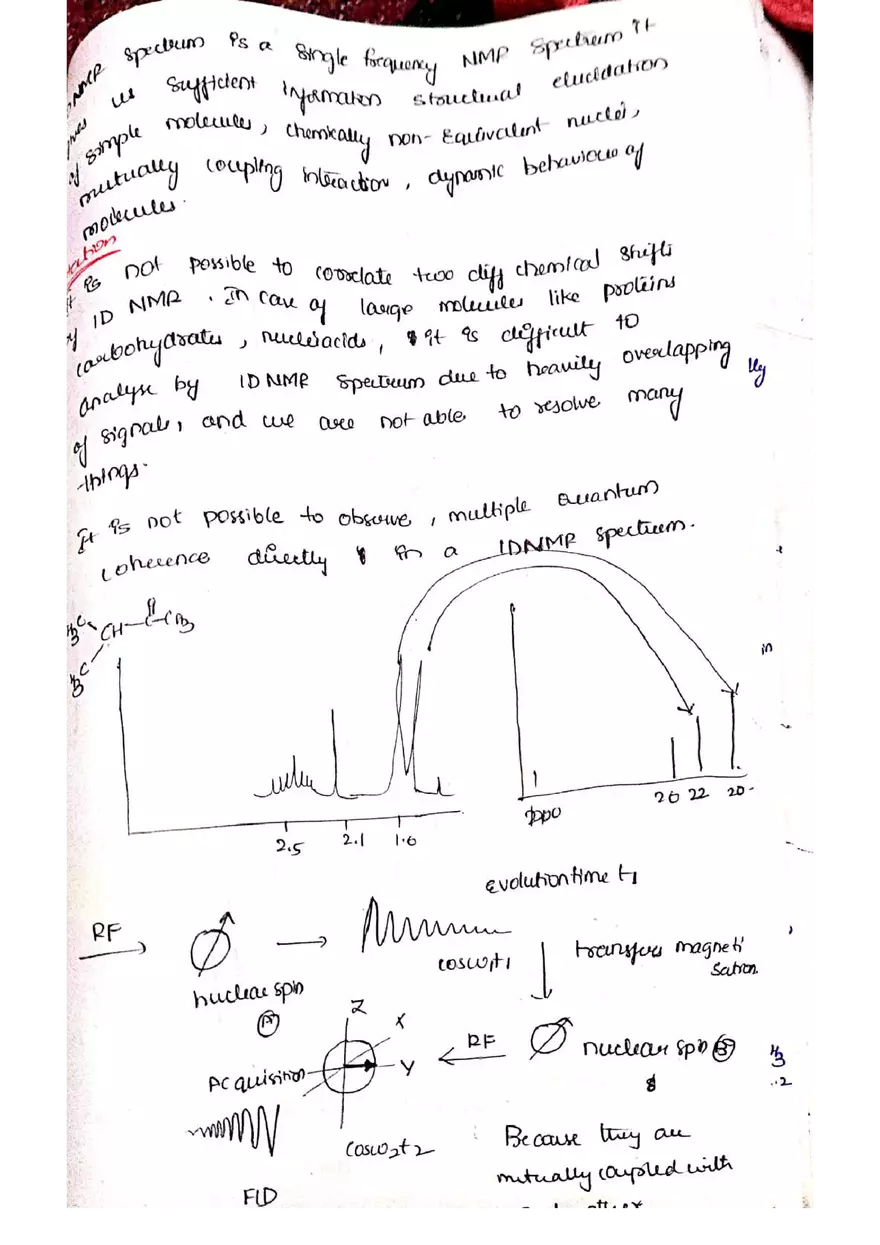 NMR spectrum is a single frequency NMR spectrum it
us sufficient information structural elucidation
of simple molecules, chemically non-Equivalent nuclei,
mutually coupling interaction, dynamic behaviour of
molecules.
It is not possible to correlate two diff chemical shifts
of 1D NMR. In case of large molecules like proteins
carbohydrates, nucleicacids, it is difficult to
analyse by 1D NMR spectrum due to heavily overlapping
of signals, and we are not able to resolve many
things.
It is not possible to observe, multiple Quantum
coherence directly in a 1DNMR spectrum.
H3C CH-C-CH3
H3C
2.5 2.1 1.0
26 22 20
evolution time t1
RF
cosw1t1
transfers magneti
sation.
nuclear spin
A
Z
X
Y
RF
nuclear spin B
Acquisition
cosw2t2
Because they are
mutually coupled with
FID